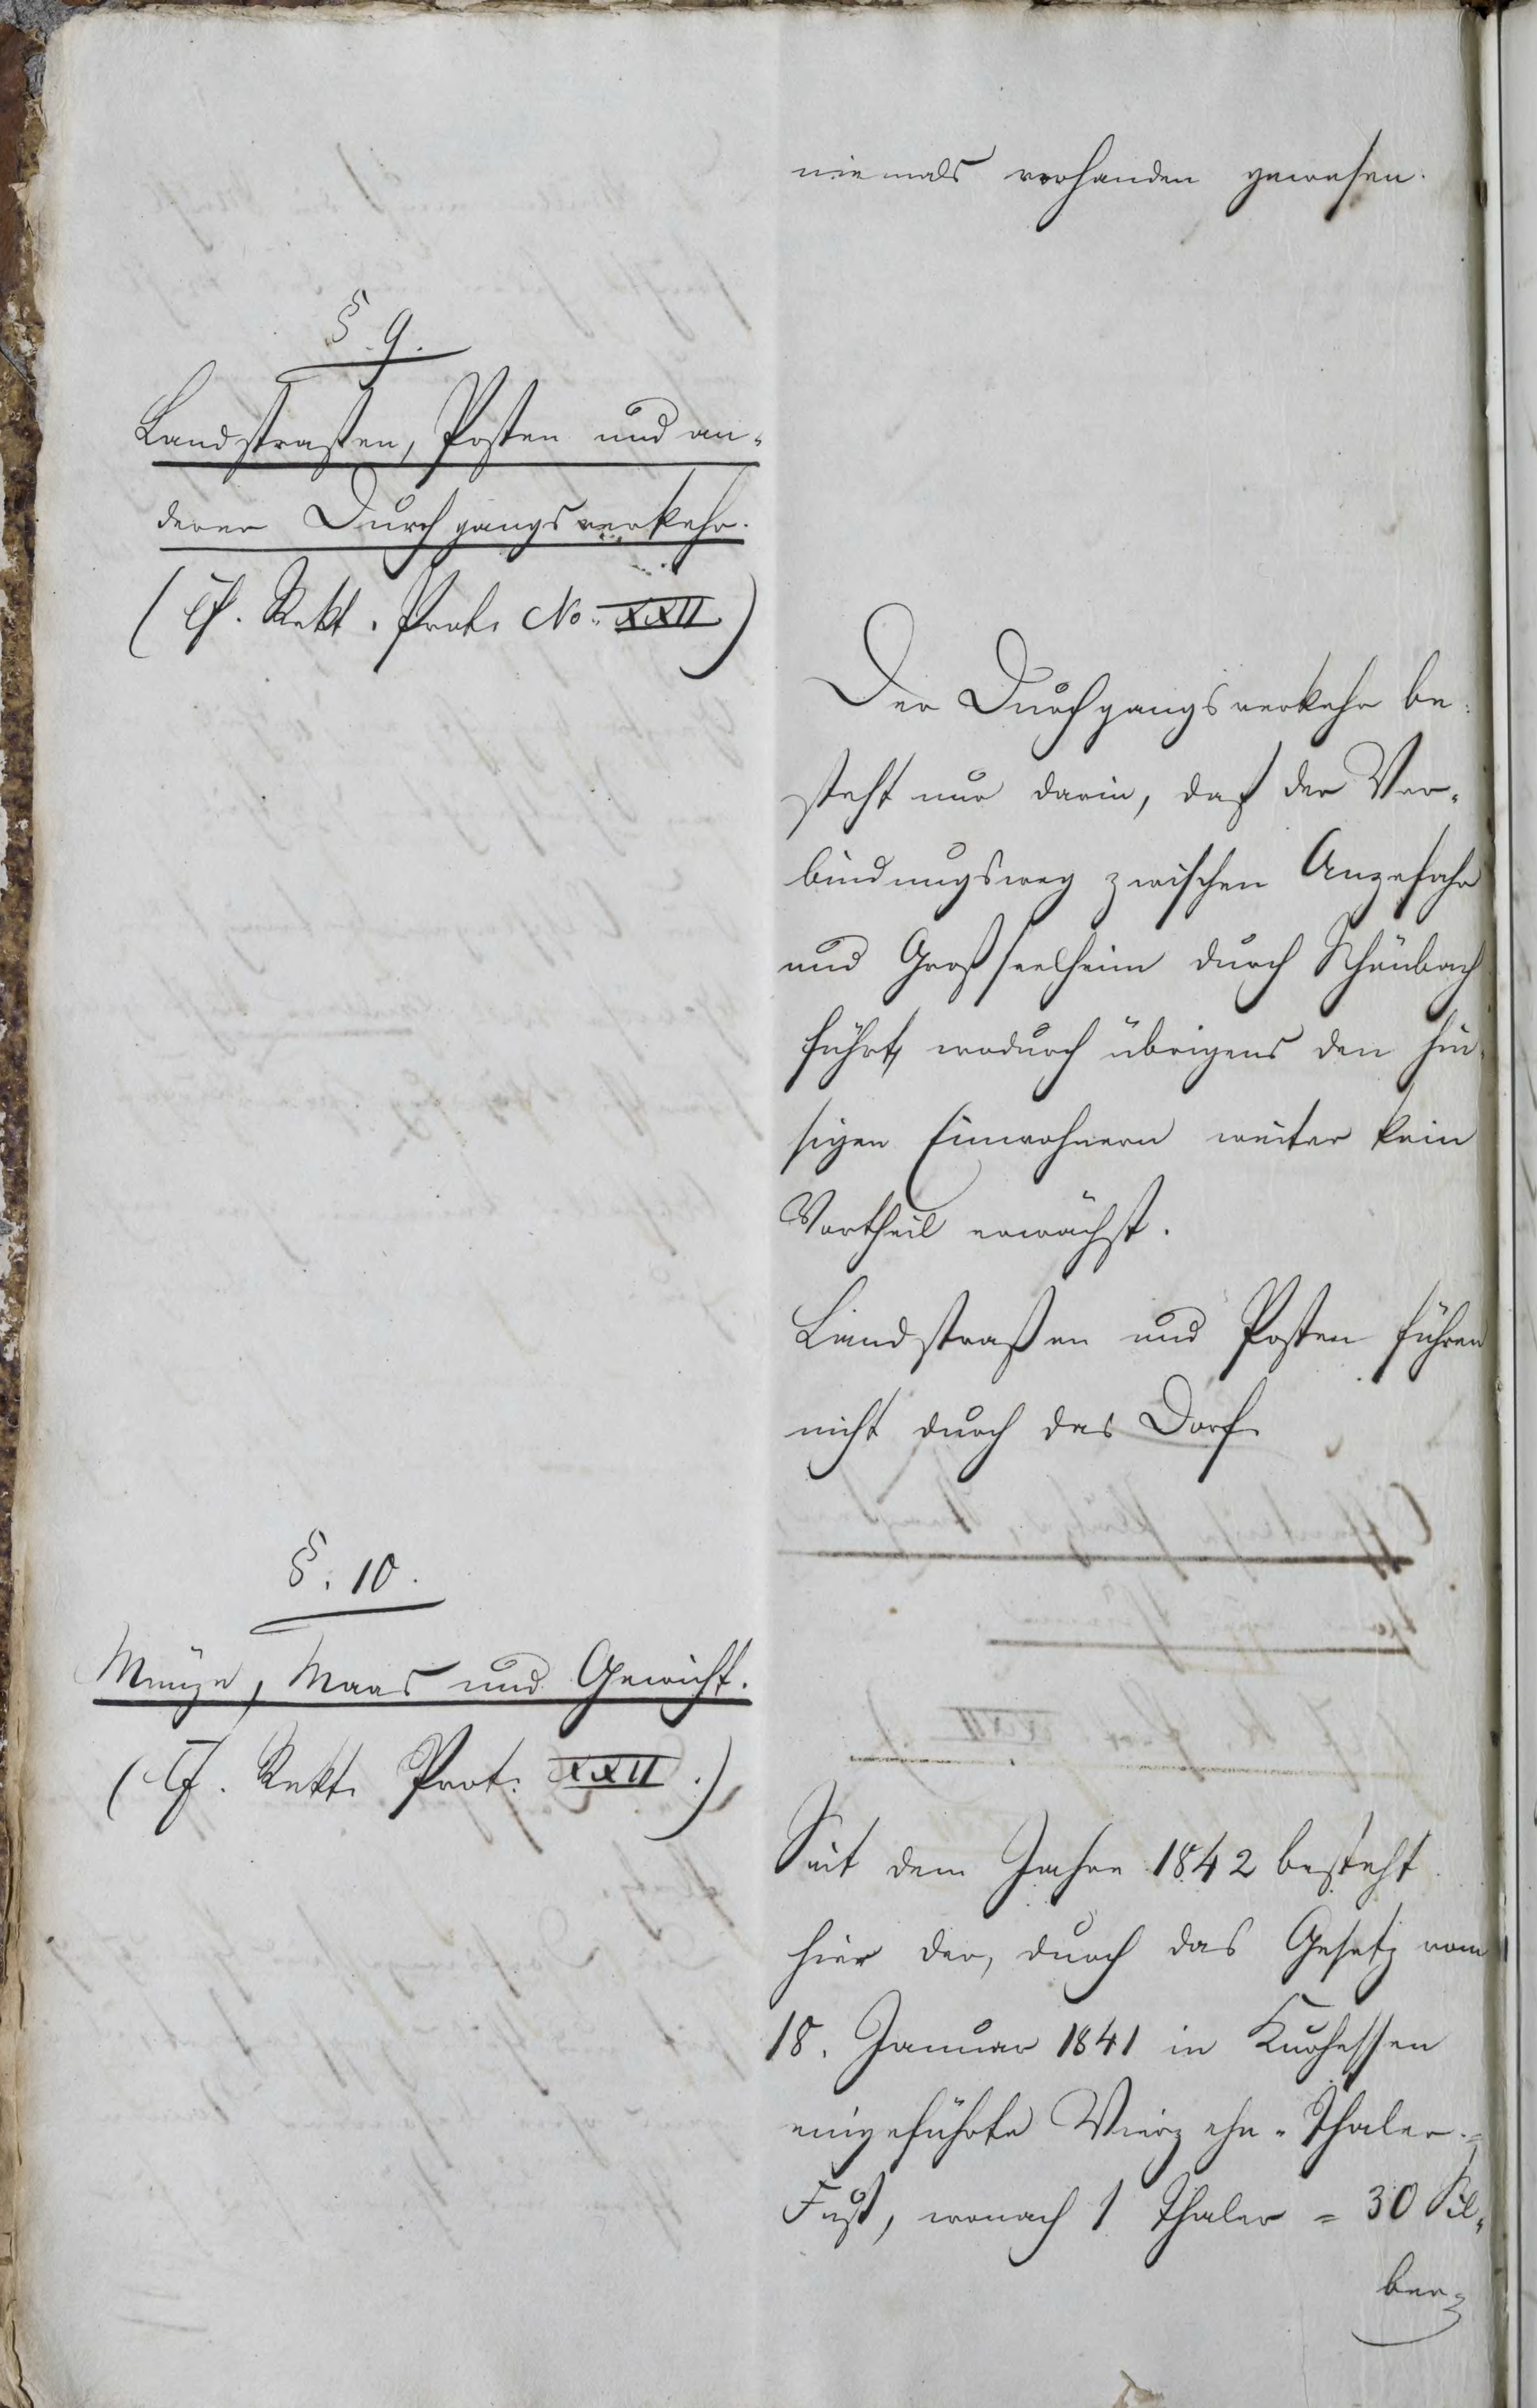 niemals vorhanden gewesen.
§ 9.
Landstraßen, Posten und an-
derer Durchgangsverkehr.
(Cf. Rekt. Prot. No. XXII)
Der Durchgangsverkehr be-
steht nur darin, daß der Ver-
bindungsweg zwischen Anzefahr
und Großseelheim durch Schönbach
führt, wodurch übrigens den hie-
sigen Einwohnern weiter kein
Vortheil erwächst.
Landstraßen und Posten führen
nicht durch das Dorf.
§. 10.
Münze, Maas und Gewicht.
(Cf. Rekt. Prot. XXII.)
Seit dem Jahre 1842 besteht
hier der, durch das Gesetz vom
18. Januar 1841 in Kurhessen
eingeführte Vierzehn-Thaler-
Fuß, wonach 1 Thaler = 30 Sil-
ber-